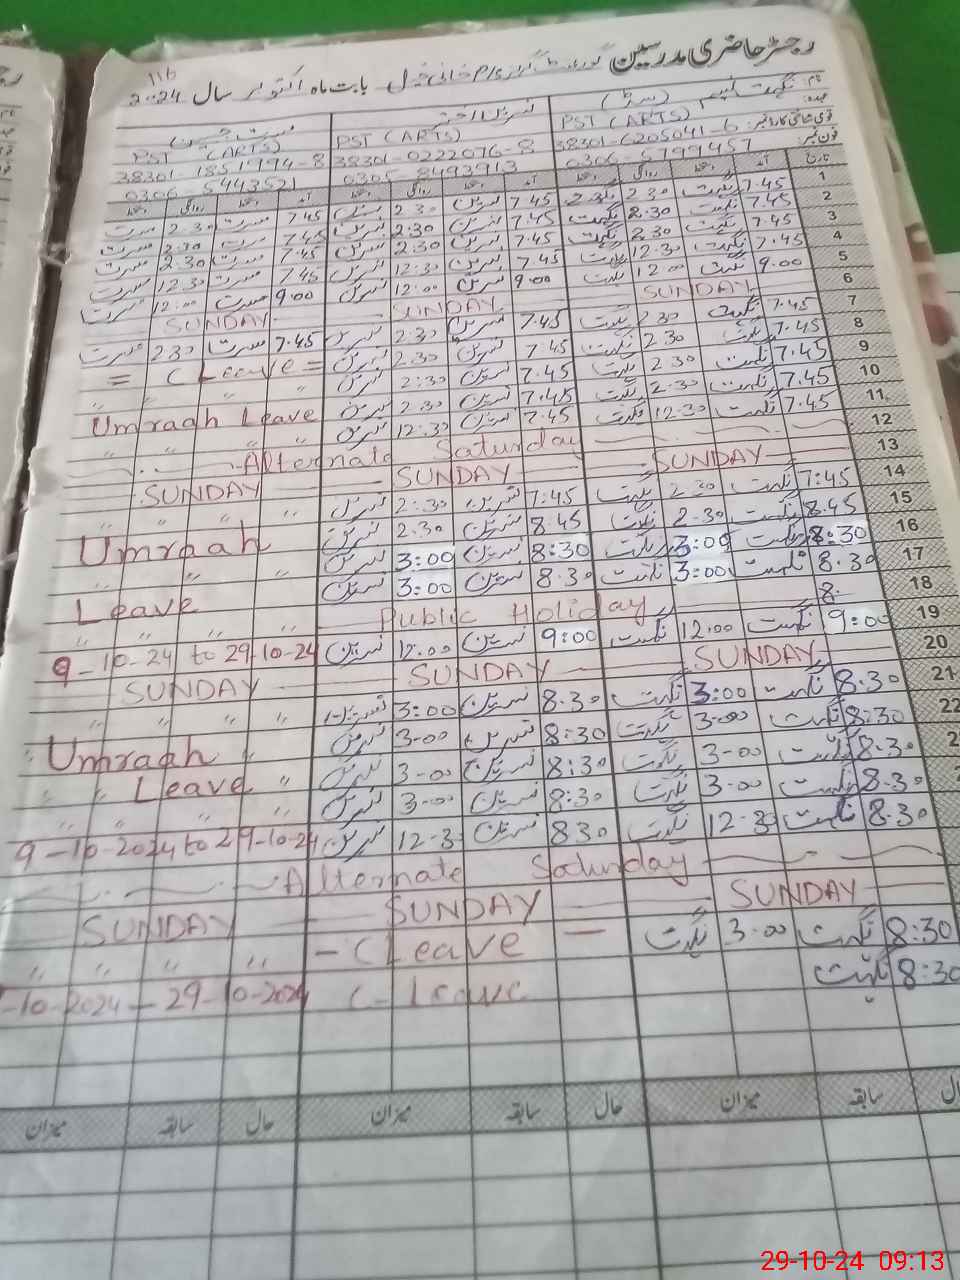 رجسٹر حاضری مدرسین گورنمنٹ بابت ماہ اکتوبر سال 2024
116
نام: نگہت نسیم
عہدہ: PST (ARTS) PST (ARTS) PST (ARTS)
قومی شناختی کارڈ نمبر: 38301-6205041-6 38301-0222076-8 38301-1851794-8
فون نمبر: 0306-5799457 0305-8493913 0306-5443521
تاریخ آمد دستخط روانگی دستخط آمد دستخط روانگی دستخط آمد دستخط روانگی دستخط
1 7.45 نگہت 2.30 نگہت 7.45 نسرین 2.30 نسرین 7.45 مسرت 2.30 مسرت
2 7.45 نگہت 2.30 نگہت 7.45 نسرین 2.30 نسرین 7.45 مسرت 2.30 مسرت
3 7.45 نگہت 2.30 نگہت 7.45 نسرین 2.30 نسرین 7.45 مسرت 2.30 مسرت
4 7.45 نگہت 12.30 نگہت 7.45 نسرین 12.30 نسرین 7.45 مسرت 12.30 مسرت
5 9.00 نگہت 12.00 نگہت 9.00 نسرین 12.00 نسرین 9.00 مسرت 12.00 مسرت
6 SUNDAY SUNDAY SUNDAY
7 7.45 نگہت 2.30 نگہت 7.45 نسرین 2.30 نسرین 7.45 مسرت 2.30 مسرت
8 7.45 نگہت 2.30 نگہت 7.45 نسرین 2.30 نسرین = C Leave =
9 7.45 نگہت 2.30 نگہت 7.45 نسرین 2:30 نسرین " " " "
10 7.45 نگہت 2.30 نگہت 7.45 نسرین 2.30 نسرین Umraah Leave
11 7.45 نگہت 12.30 نگہت 7.45 نسرین 12.30 نسرین " " " "
12 Alternate Saturday
13 SUNDAY SUNDAY SUNDAY
14 7:45 نگہت 2.30 نگہت 7:45 نسرین 2:30 نسرین " " " "
15 8.45 نگہت 2.30 نگہت 8.45 نسرین 2.30 نسرین Umraah
16 8:30 نگہت 3:00 نگہت 8:30 نسرین 3:00 نسرین " " "
17 8.30 نگہت 3:00 نگہت 8.30 نسرین 3:00 نسرین Leave
18 8. Public Holiday " " " "
19 9:00 نگہت 12.00 نگہت 9:00 نسرین 12.00 نسرین 9-10-24 to 29-10-24
20 SUNDAY SUNDAY SUNDAY
21 8.30 نگہت 3:00 نگہت 8.30 نسرین 3:00 نسرین " " "
22 8:30 نگہت 3-00 نگہت 8:30 نسرین 3-00 نسرین Umraah
8.30 نگہت 3-00 نگہت 8:30 نسرین 3-00 نسرین " " Leave "
8.30 نگہت 3-00 نگہت 8:30 نسرین 3-00 نسرین " " " "
8.30 نگہت 12-3 نگہت 830 نسرین 12-3 نسرین 9-10-2024 to 29-10-24
Alternate Saturday
SUNDAY SUNDAY SUNDAY
8:30 نگہت 3-00 نگہت - C Leave - " " " "
8:30 نگہت C-Leave -10-2024 - 29-10-2024
حال سابقہ میزان حال سابقہ میزان حال سابقہ میزان
29-10-24 09:13